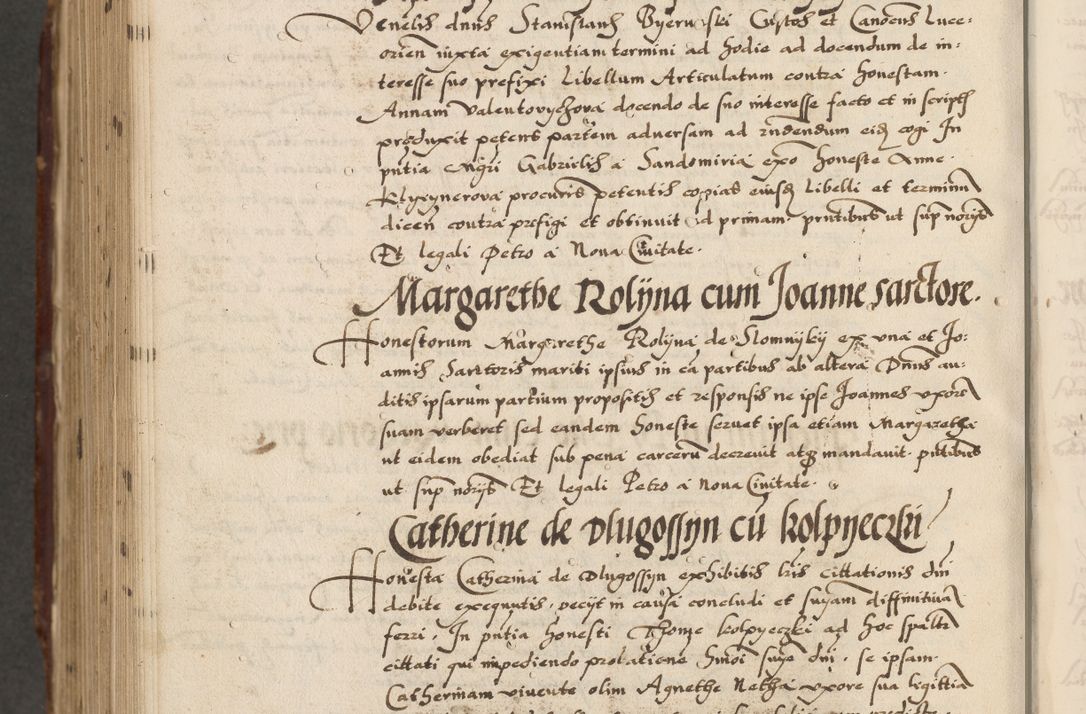 Venelis dnus Stanislaus Byerwski Custos et Canocus Luce-
orien iuxta exigentiam termini ad hodie ad docendum de in-
teresse suo prefixi Libellum Articulatum contra honestam
Annam Valentovychova docendo de suo interesse facto et in scriptis
produxit petens partem adversam ad rndendum eidem cogi In
pntia Mgri Gabrielis a Sandomiria exo honeste Anne
Klyxynerova procuris petentis copias eiusdem libelli et terminum
dicen contra prefigi et obtinuit ad primam pntibus ut sup norys
Et legali Petro a Nova Civitate.
Margarethe Rolijna cum Joanne sarctore.
Honestorum Margarethe Rolijna de Slomnijkij ex una et Jo-
annis Sarctoris mariti ipsius in ea partibus ab altera Dnus au-
ditis ipsarum partium propositis et responsis ne ipse Joannes uxorem
suam verberet sed eandem honeste servet ipsa etiam Margaretha
ut eidem obediat sub pena carcerum decrevit atque mandavit. pntibus
ut sup norys Et legali Petro a Nova Civitate.
Catherine de Dlugossyn cu kolpyeczki
Honesta Catherina de Dlugossyn exhibitis lris cittationis dni
debite exequutis, pecijt in causa concludi et suam diffinitivam
ferri. In pntia honesti Thome kolpyeczki ad hoc spaltr
cittati qui impediendo prolatione hmoi snye dni. se ipsam
Catherinam vivente olim Agnethe Netha uxore sua ligittia